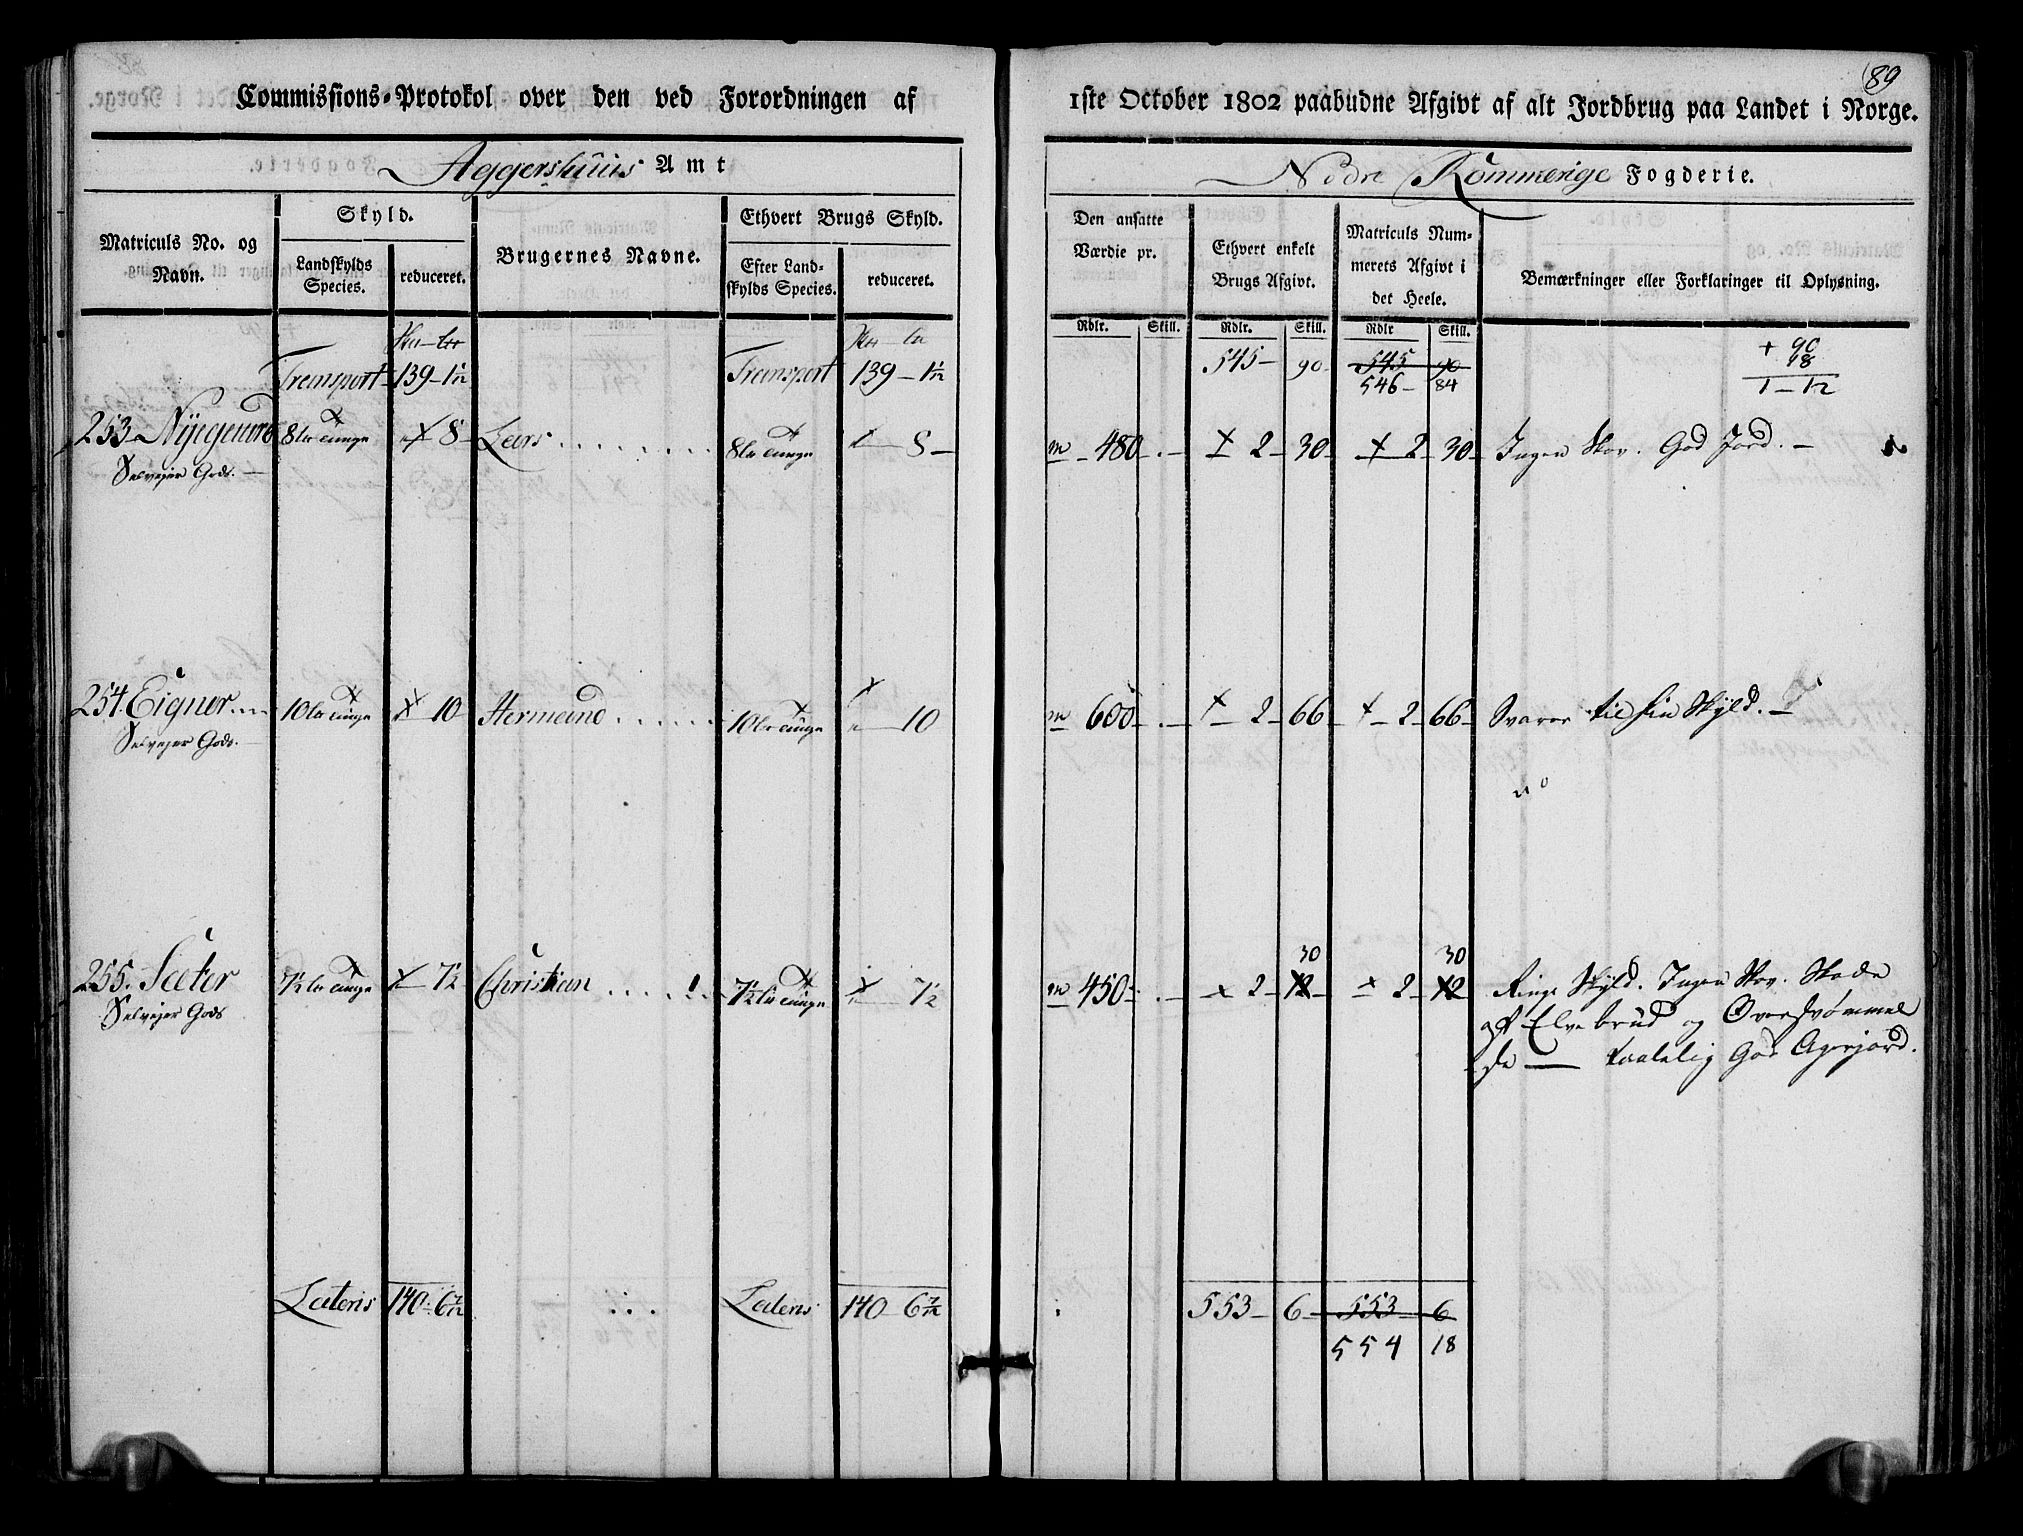 89
Commissions-Protokol over den ved Forordningen af 1ste October 1802 paabudne Afgivt af alt Jordbrug paa Landet i Norge.
Aggershuus Amt
Nedre Rommerige Fogderie.
Matriculs No. og Navn.
Skyld.
Landskylds Species.
reduceret.
Brugernes Navne.
Ethvert Brugs Skyld.
Efter Landskylds Species.
reduceret.
Den ansatte Værdie pr.
Ethvert enkelt Brugs Afgivt.
Matriculs Nummerets Afgivt i det Heele.
Bemærkninger eller Forklaringer til Oplysning.
Rdlr. Skill. Rdlr. Skill. Rdlr Skill.
Transport 139 - 1½ Transport 139 - 1½ 545 - 90 - 545 90
546 - 84
+ 90
18
1 - 12
253 Nÿegaard 8 lb tunge 8 Lars 8 lb tunge 8 - 480 - 2 - 30 - 2 30 - Ingen Skov. God Jord. -
Selvejer Gods. -
254. Eigner 10 lb tunge 10 Hermand 10 lb tunge 10 600 - 2 - 66 - 2 - 66 - Svarer til sin Skyld. -
Selvejer Gods. -
30 30
255. Sæter 7½ lb tunge 7½ Christian 7½ lb tunge 7½ 450 - 2 - 12 - 2 - 12 Ringe Skyld. Ingen Skov. Skade
Selvejer Gods
af Elvebrud og Oversvømmel
se — taalelig God Agerjord.
Lateris 140 - 6 7/12 Lateris 140 - 6 7/12 553 - 6 - 553 - 6
554 18